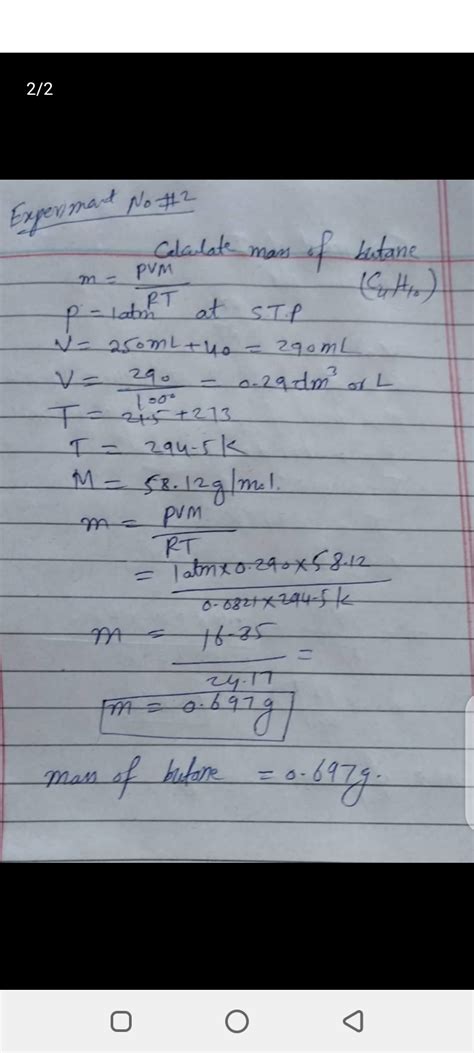 2/2
Experiment No #2
Calculate mass of butane
m = PVM / RT (C4H10)
P = 1atm at S.T.P
V = 250mL + 40 = 290mL
V = 290 / 1000 = 0.29dm³ or L
T = 21.5 + 273
T = 294.5 K
M = 58.12g/mol.
m = PVM / RT
= 1atm x 0.290 x 58.12 / 0.0821 x 294.5 K
m = 16.85 / 24.17 =
m = 0.697g
mass of butane = 0.697g.